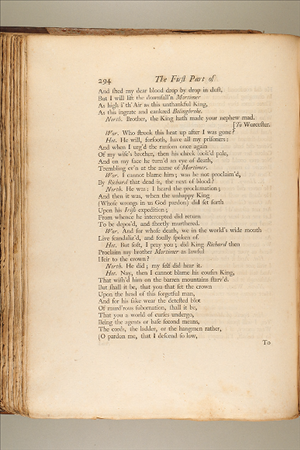 294 The First Part of
And shed my dear blood drop by drop in dust,
But I will lift the downfall'n Mortimer
As high i' th' Air as this unthankful King,
As this ingrate and cankred Bolingbroke.
North. Brother, the King hath made your nephew mad.
[To Worcester.
Wor. Who strook this heat up after I was gone?
Hot. He will, forsooth, have all my prisoners:
And when I urg'd the ransom once again
Of my wife's brother, then his cheek look'd pale,
And on my face he turn'd an eye of death,
Trembling ev'n at the name of Mortimer.
Wor. I cannot blame him; was he not proclaim'd,
By Richard that dead is, the next of blood?
North. He was: I heard the proclamation;
And then it was, when the unhappy King
(Whose wrongs in us God pardon) did set forth
Upon his Irish expedition;
From whence he intercepted did return
To be depos'd, and shortly murthered.
Wor. And for whose death, we in the world's wide mouth
Live scandaliz'd, and foully spoken of.
Hot. But soft, I pray you; did King Richard then
Proclaim my brother Mortimer
Heir to the crown?
North. He did; my self did hear it.
Hot. Nay, then I cannot blame his cousin King,
That wish'd him on the barren mountains starv'd.
But shall it be, that you that set the crown
Upon the head of this forgetful man,
And for his sake wear the detested blot
Of murd'rous subornation, shall it be,
That you a world of curses undergo,
Being the agents or base second means,
The cords, the ladder, or the hangman rather,
(O pardon me, that I descend so low,
To